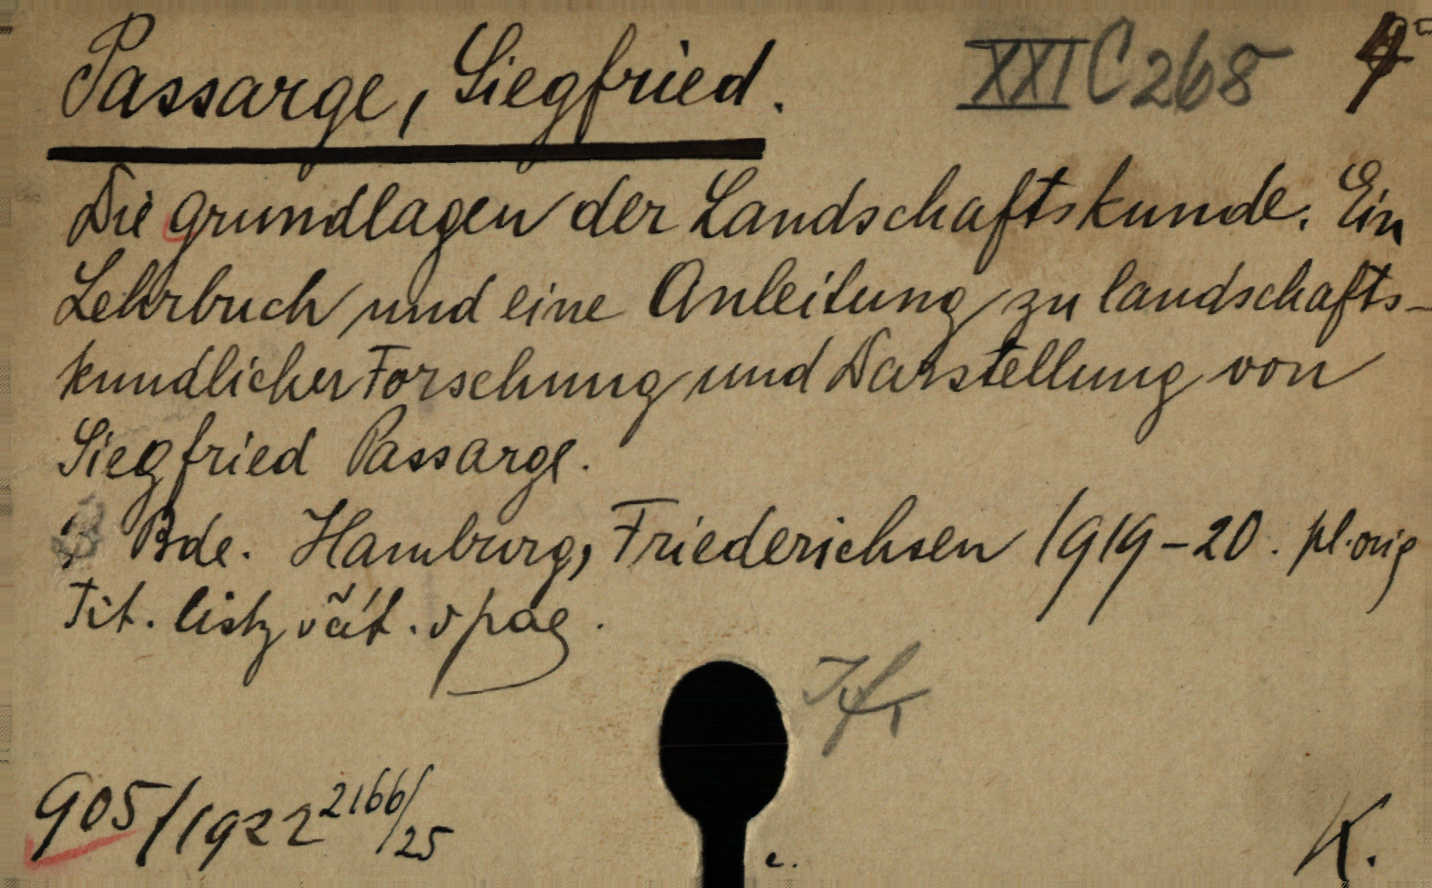 Passarge, Siegfried. XXI C 268 4°
Die Grundlagen der Landschaftskunde. Ein
Lehrbuch und eine Anleitung zu landschafts-
kundlicher Forschung und Darstellung von
Siegfried Passarge.
Bde. Hamburg, Friederichsen 1919-20. pl. orig
Tit. listy včít. v pag.
905/1922 2166/25
c. K.